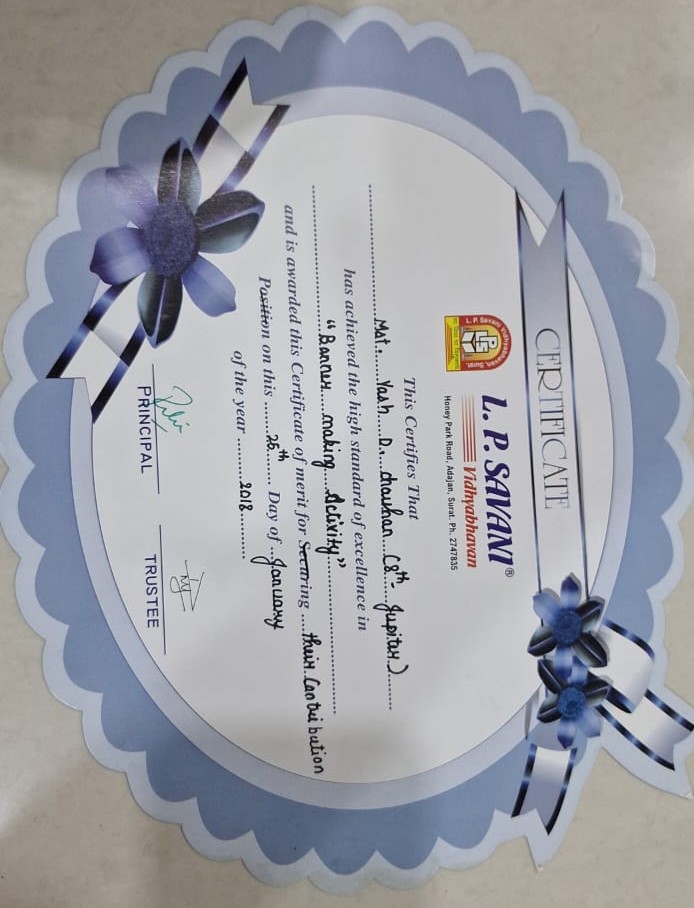 CERTIFICATE
L. P. Savani Vidhyabhavan, Surat.
L. P. SAVANI®
Vidhyabhavan
Honey Park Road, Adajan, Surat. Ph. 2747835
This Certifies That
Mst. Yash D. chauhan (8th - Jupiter)
has achieved the high standard of excellence in
"Banner making Activity"
and is awarded this Certificate of merit for Securing their Contribution
Position on this 25th Day of January
of the year 2018
PRINCIPAL TRUSTEE